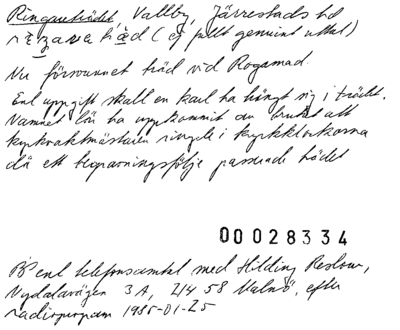 Ringareträdet, Vallby, Järrestads hd
(ej fullt genuint uttal)
Nu försvunnet träd vid Rogamad.
Enl uppgift skall en karl ha hängt sig i trädet.
Namnet lär ha uppkommit av bruket att
kyrkvaktmästaren ringde i kyrkklockorna
då ett begravningsfölje passerade trädet
00028334
PB enl telefonsamtal med Hilding
Nydalavägen 3A, 214 58 Malmö, efter
radioprogram 1985-01-25